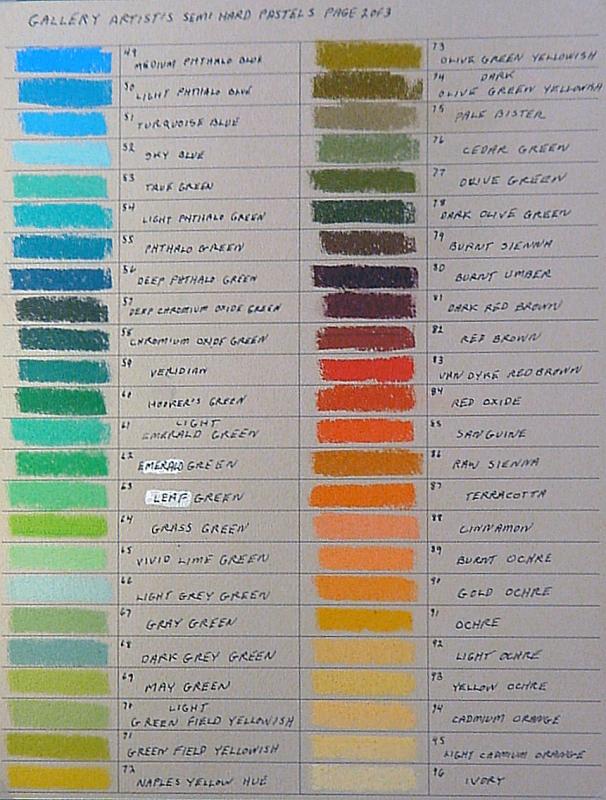 GALLERY ARTIST'S SEMI HARD PASTELS PAGE 2 OF 3
49 MEDIUM PHTHALO BLUE
50 LIGHT PHTHALO BLUE
51 TURQUOISE BLUE
52 SKY BLUE
53 TRUE GREEN
54 LIGHT PHTHALO GREEN
55 PHTHALO GREEN
56 DEEP PHTHALO GREEN
57 DEEP CHROMIUM OXIDE GREEN
58 CHROMIUM OXIDE GREEN
59 VERIDIAN
60 HOOKER'S GREEN
61 LIGHT
EMERALD GREEN
62 EMERALD GREEN
63 LEAF GREEN
64 GRASS GREEN
65 VIVID LIME GREEN
66 LIGHT GREY GREEN
67 GRAY GREEN
68 DARK GREY GREEN
69 MAY GREEN
70 LIGHT
GREEN FIELD YELLOWISH
71 GREEN FIELD YELLOWISH
72 NAPLES YELLOW HUE
73 OLIVE GREEN YELLOWISH
74 DARK
OLIVE GREEN YELLOWISH
75 PALE BISTER
76 CEDAR GREEN
77 OLIVE GREEN
78 DARK OLIVE GREEN
79 BURNT SIENNA
80 BURNT UMBER
81 DARK RED BROWN
82 RED BROWN
83 VAN DYKE RED BROWN
84 RED OXIDE
85 SANGUINE
86 RAW SIENNA
87 TERRACOTTA
88 CINNAMON
89 BURNT OCHRE
90 GOLD OCHRE
91 OCHRE
92 LIGHT OCHRE
93 YELLOW OCHRE
94 CADMIUM ORANGE
95 LIGHT CADMIUM ORANGE
96 IVORY